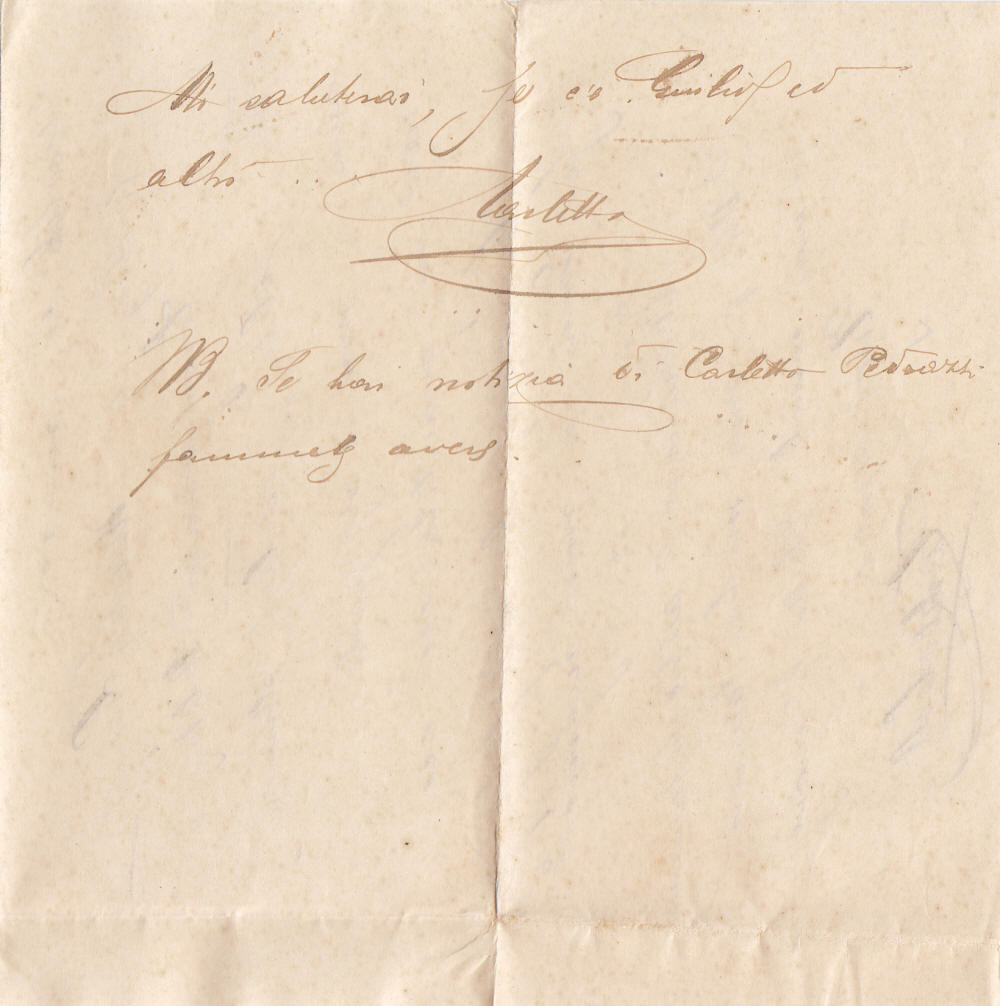 Mi saluterai, se c'è Giulio ed
altri ...
Carletto
NB. Se hai notizia di Carletto Pedrazzi
fammela avere.